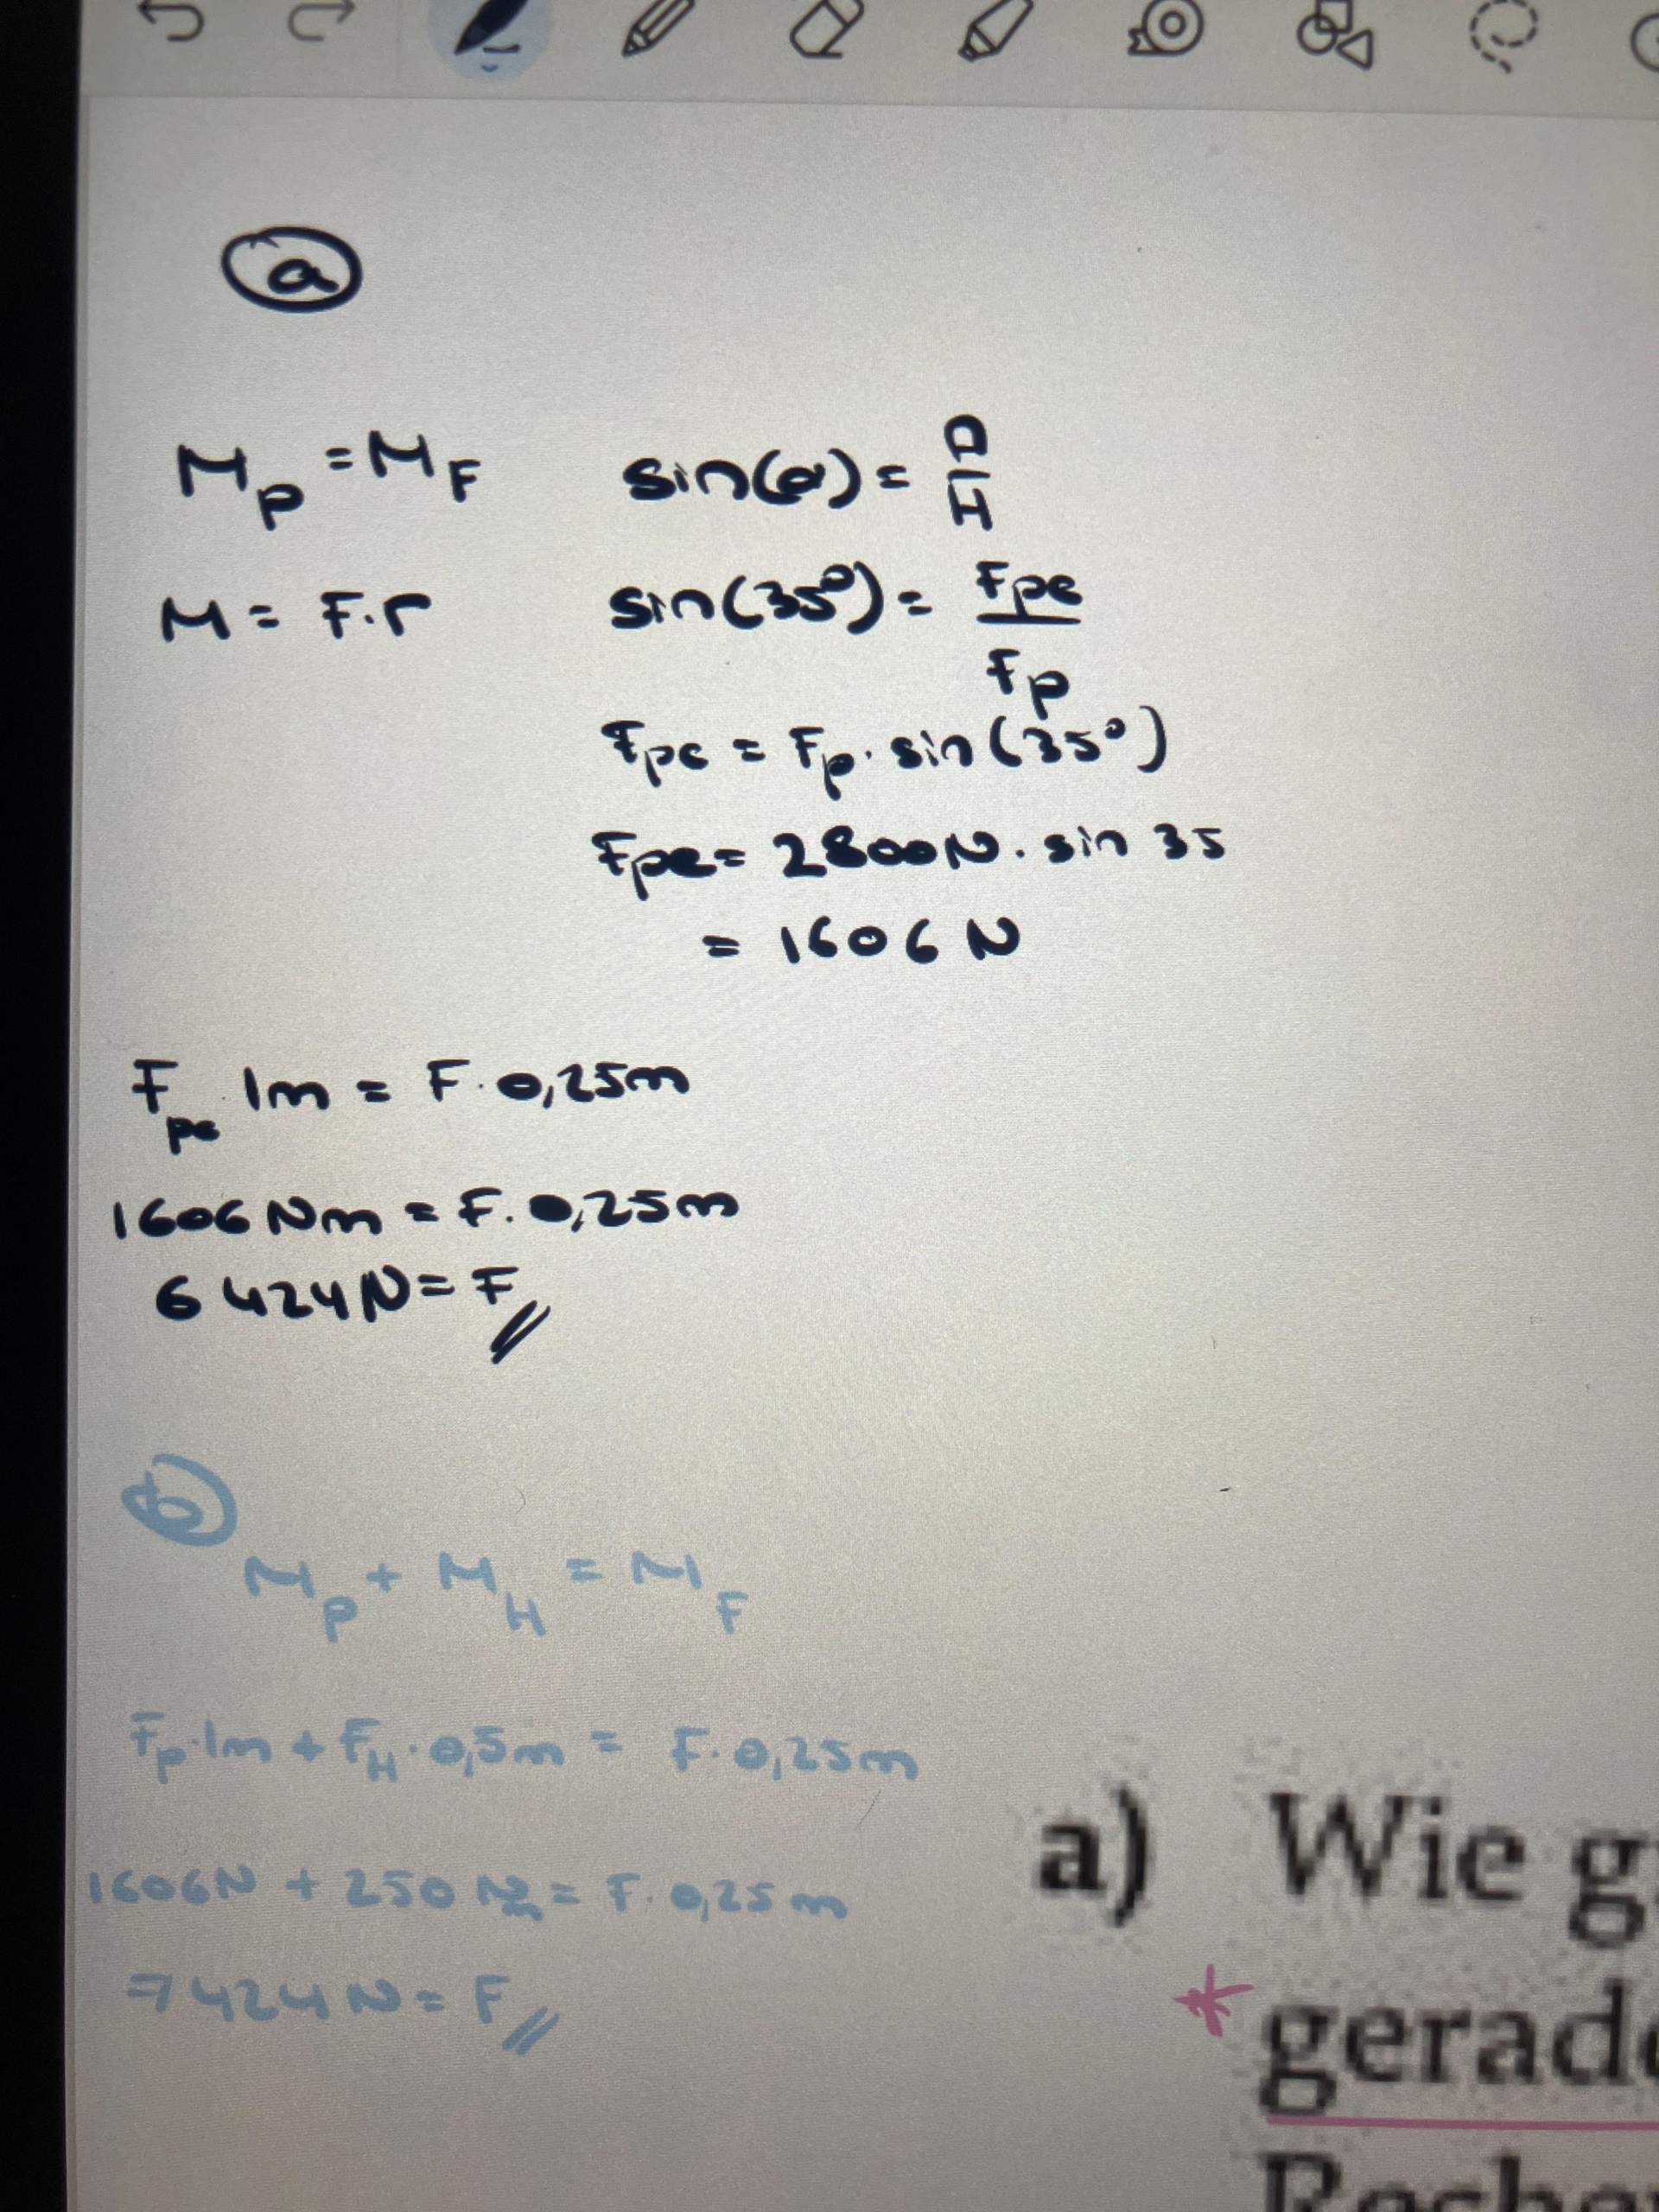 a
M_P = M_F
sin(α) = O/H
M = F · r
sin(35°) = Fpe/Fp
Fpe = Fp · sin(35°)
Fpe = 2800N · sin 35
= 1606 N
F_pe · 1m = F · 0,25m
1606 Nm = F · 0,25m
6424N = F
b
M_P + M_H = M_F
F_P · 1m + F_H · 0,5m = F · 0,25m
1606N + 250 = F · 0,25m
7424N = F
a) Wie
* gerad